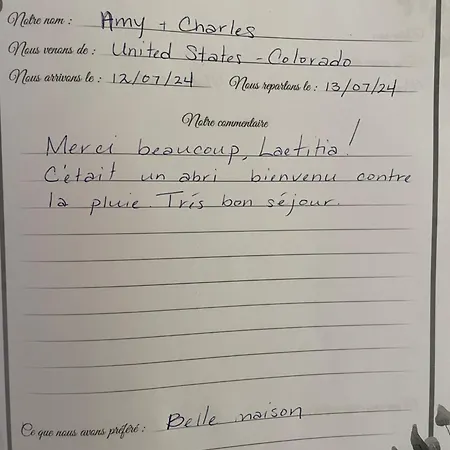 Notre nom : Amy + Charles
Nous venons de : United States - Colorado
Nous arrivons le : 12/07/24 Nous repartons le : 13/07/24
Notre commentaire
Merci beaucoup, Laetitia!
C'était un abri bienvenu contre
la pluie. Trís bon séjour.
Ce que nous avons préféré : Belle naison